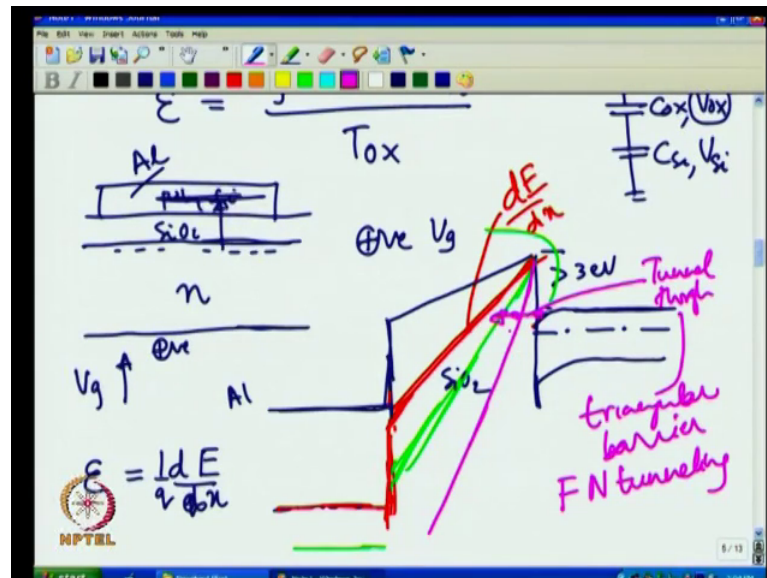 Note1 - Windows Journal
File Edit View Insert Actions Tools Help
B I
E =
Tox
Cox, Vox
CSi, VSi
Al
SiO2
n
⊕ve
Vg
⊕ve Vg
dE
dx
> 3 eV
Tunnel
through
Al
SiO2
triangular
barrier
FN tunneling
E = 1 d E
q dx
NPTEL
5 / 13